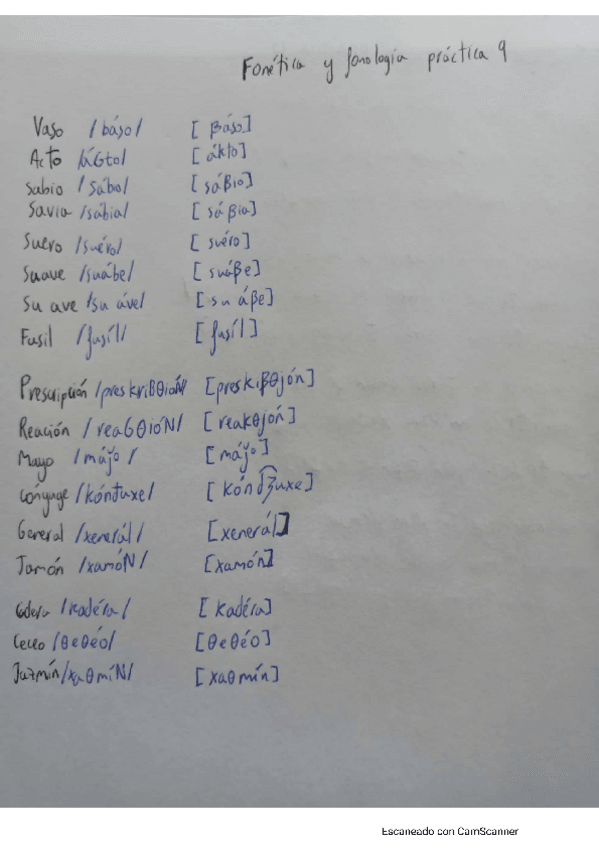 Fonética y fonología práctica 9
Vaso /báso/ [báso]
Acto /áGto/ [ákto]
Sabio /sábo/ [sáβio]
Savia /sábia/ [sáβia]
Suero /suéro/ [suéro]
Suave /suábe/ [suáβe]
Su ave /su áve/ [su áβe]
Fusil /fusíl/ [fusíl]
Prescripción /preskriBθióN/ [preskiβθjón]
Reación /reaGθióN/ [reakθjón]
Mayo /májo/ [májo]
Cónyuge [kón
General /xenerál/ [xenerál]
Jamón /xamóN/ [xamón]
/kadéra/ [kadéra]
Ceceo /θeθéo/ [θeθéo]
Jazmín /xaθmíN/ [xaθmín]
Escaneado con CamScanner